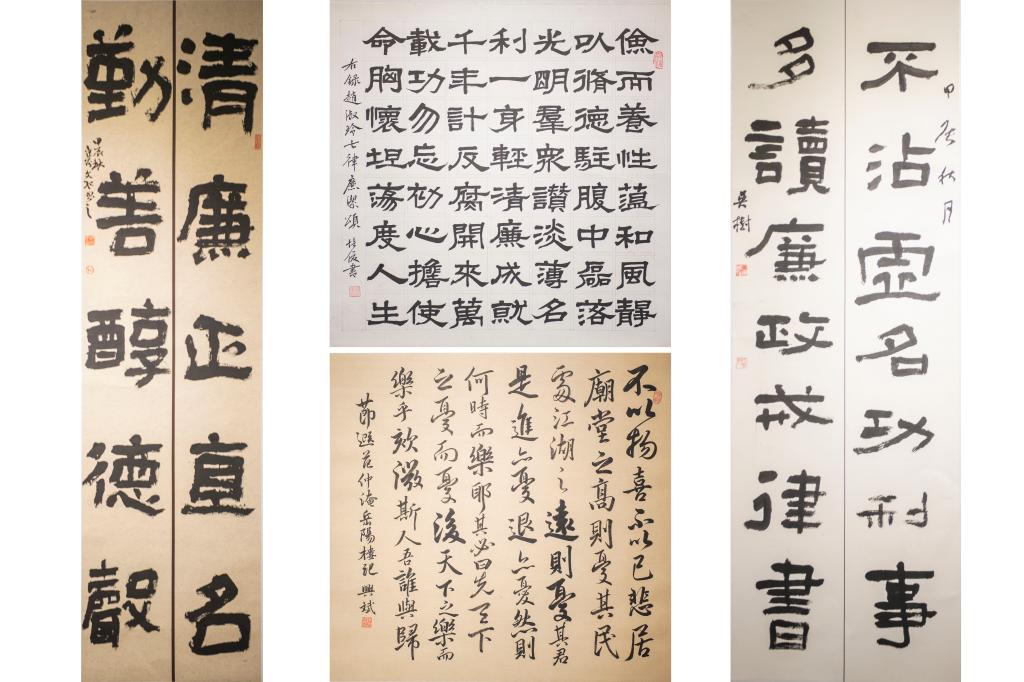 清廉正直名
勤善醇德聲
甲辰秋
儉而養性蕰和風靜
以脩德駐腹中磊落
光明羣衆讚淡薄名
利一身輕清廉成就
千年計反腐開來萬
載功勿忘初心擔使
命胸懷坦蕩度人生
右錄趙淑玲七律廉潔頌 書
不以物喜不以己悲居
廟堂之高則憂其民
處江湖之遠則憂其君
是進亦憂退亦憂然則
何時而樂耶其必曰先天下
之憂而憂後天下之樂而
樂乎歟微斯人吾誰與歸
節選范仲淹岳陽樓記 興斌
甲辰秋月
不沾虛名功利事
多讀廉政戒律書
英樹